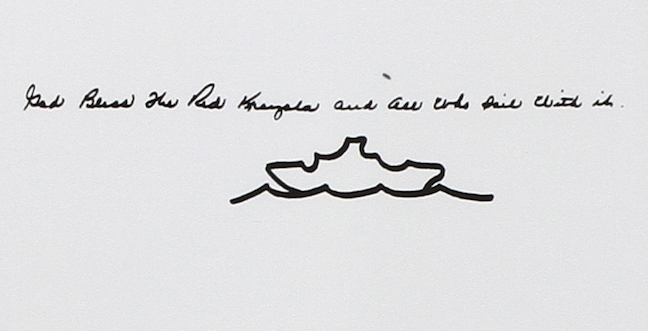 God Bless The Red Krayola and All Who Sail With it.